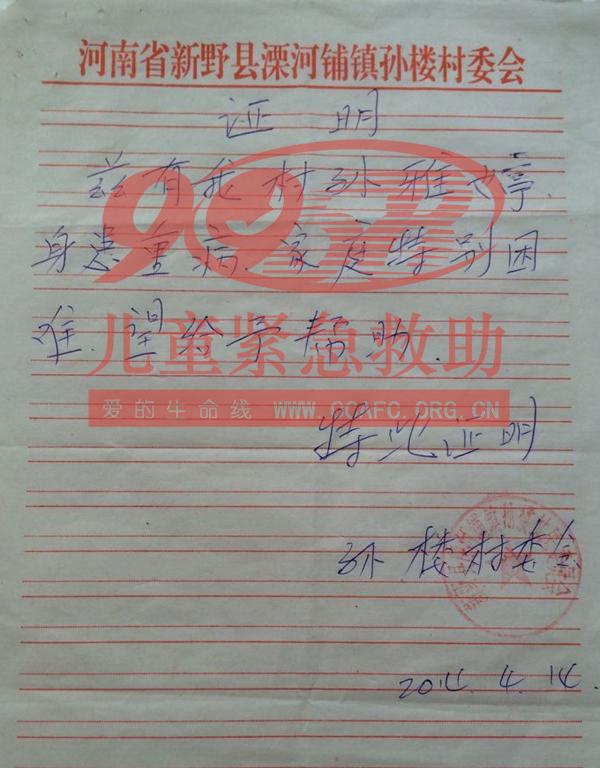 河南省新野县溧河铺镇孙楼村委会
证 明
兹有我村孙雅婷.
身患重病.家庭特别困
难.望给予帮助.
儿童紧急救助
爱的生命线 WWW.GOAFC.ORG.CN
特此证明
孙楼村委会
2014.4.14.